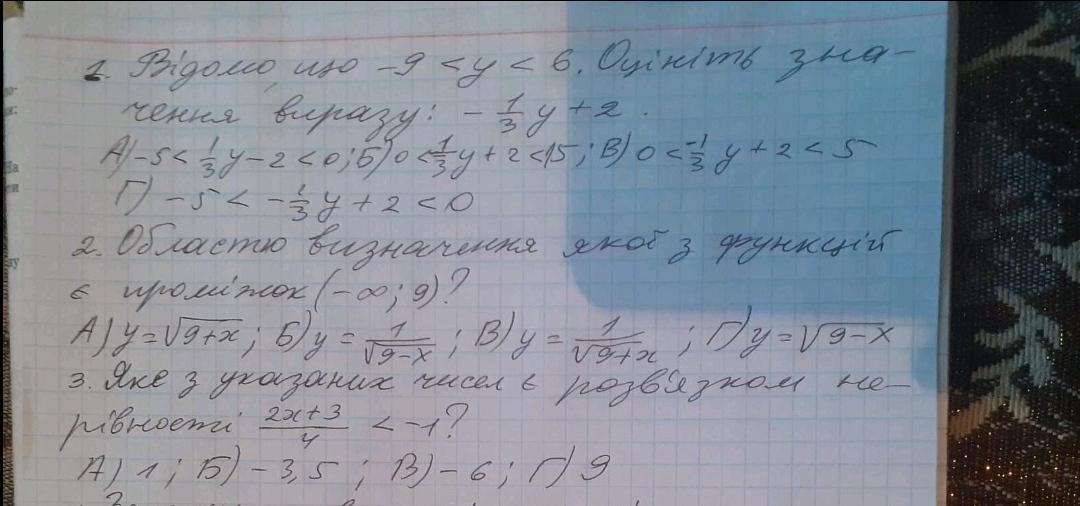 1. Відомо, що -9 < y < 6. Оцініть зна-
чення виразу: -1/3 y + 2.
А) -5 < 1/3 y - 2 < 0; Б) 0 < 1/3 y + 2 < 15; В) 0 < -1/3 y + 2 < 5
Г) -5 < -1/3 y + 2 < 0
2. Областю визначення якої з функцій
є проміжок (-∞; 9)?
А) y = √(9+x); Б) y = 1/√(9-x); В) y = 1/√(9+x); Г) y = √(9-x)
3. Яке з указаних чисел є розв'язком не-
рівності (2x+3)/4 < -1?
А) 1; Б) -3,5; В) -6; Г) 9